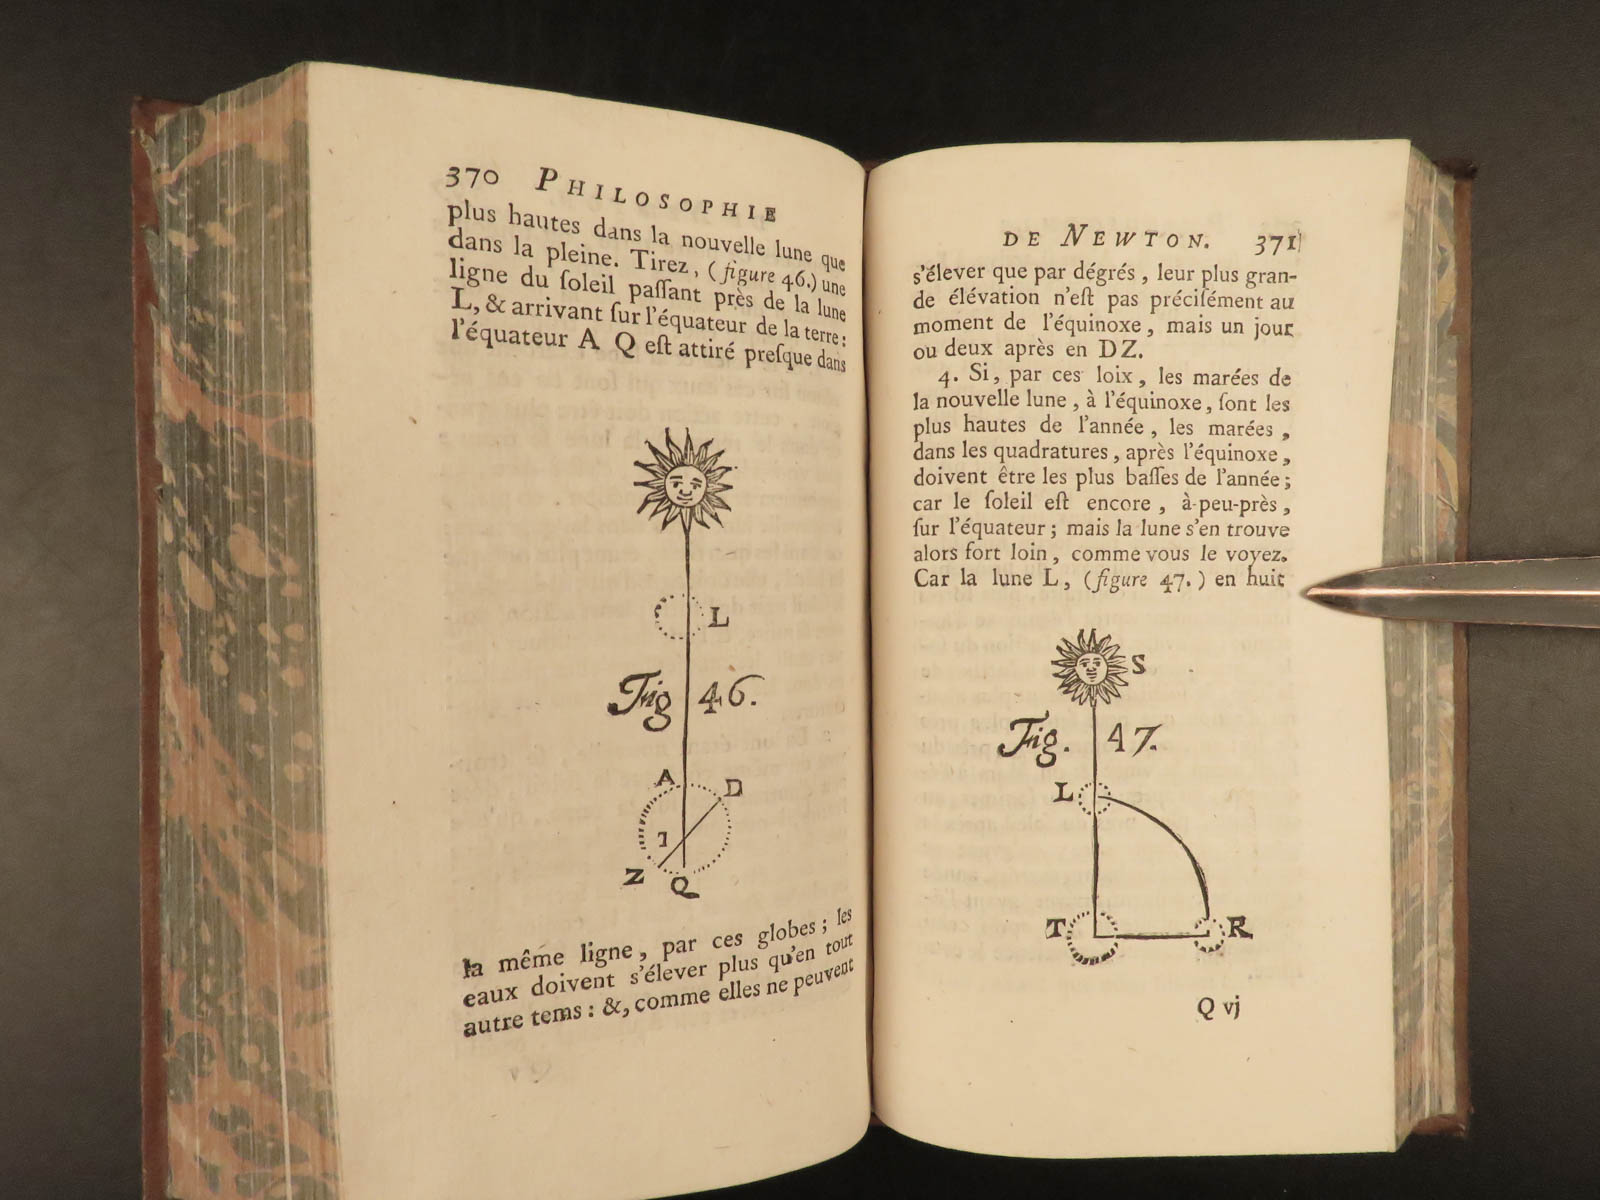 370 PHILOSOPHIE
plus hautes dans la nouvelle lune que
dans la pleine. Tirez, (figure 46.) une
ligne du ſoleil paſſant près de la lune
L, & arrivant ſur l'équateur de la terre:
l'équateur A Q eſt attiré preſque dans
L
Fig 46.
A D
T
Z Q
la même ligne, par ces globes; les
eaux doivent s'élever plus qu'en tout
autre tems: &, comme elles ne peuvent
DE NEWTON. 371
s'élever que par dégrés, leur plus gran-
de élévation n'eſt pas préciſément au
moment de l'équinoxe, mais un jour
ou deux après en DZ.
4. Si, par ces loix, les marées de
la nouvelle lune, à l'équinoxe, ſont les
plus hautes de l'année, les marées,
dans les quadratures, après l'équinoxe,
doivent être les plus baſſes de l'année;
car le ſoleil eſt encore, à-peu-près,
ſur l'équateur; mais la lune s'en trouve
alors fort loin, comme vous le voyez.
Car la lune L, (figure 47.) en huit
S
Fig. 47.
L
T R
Q vj